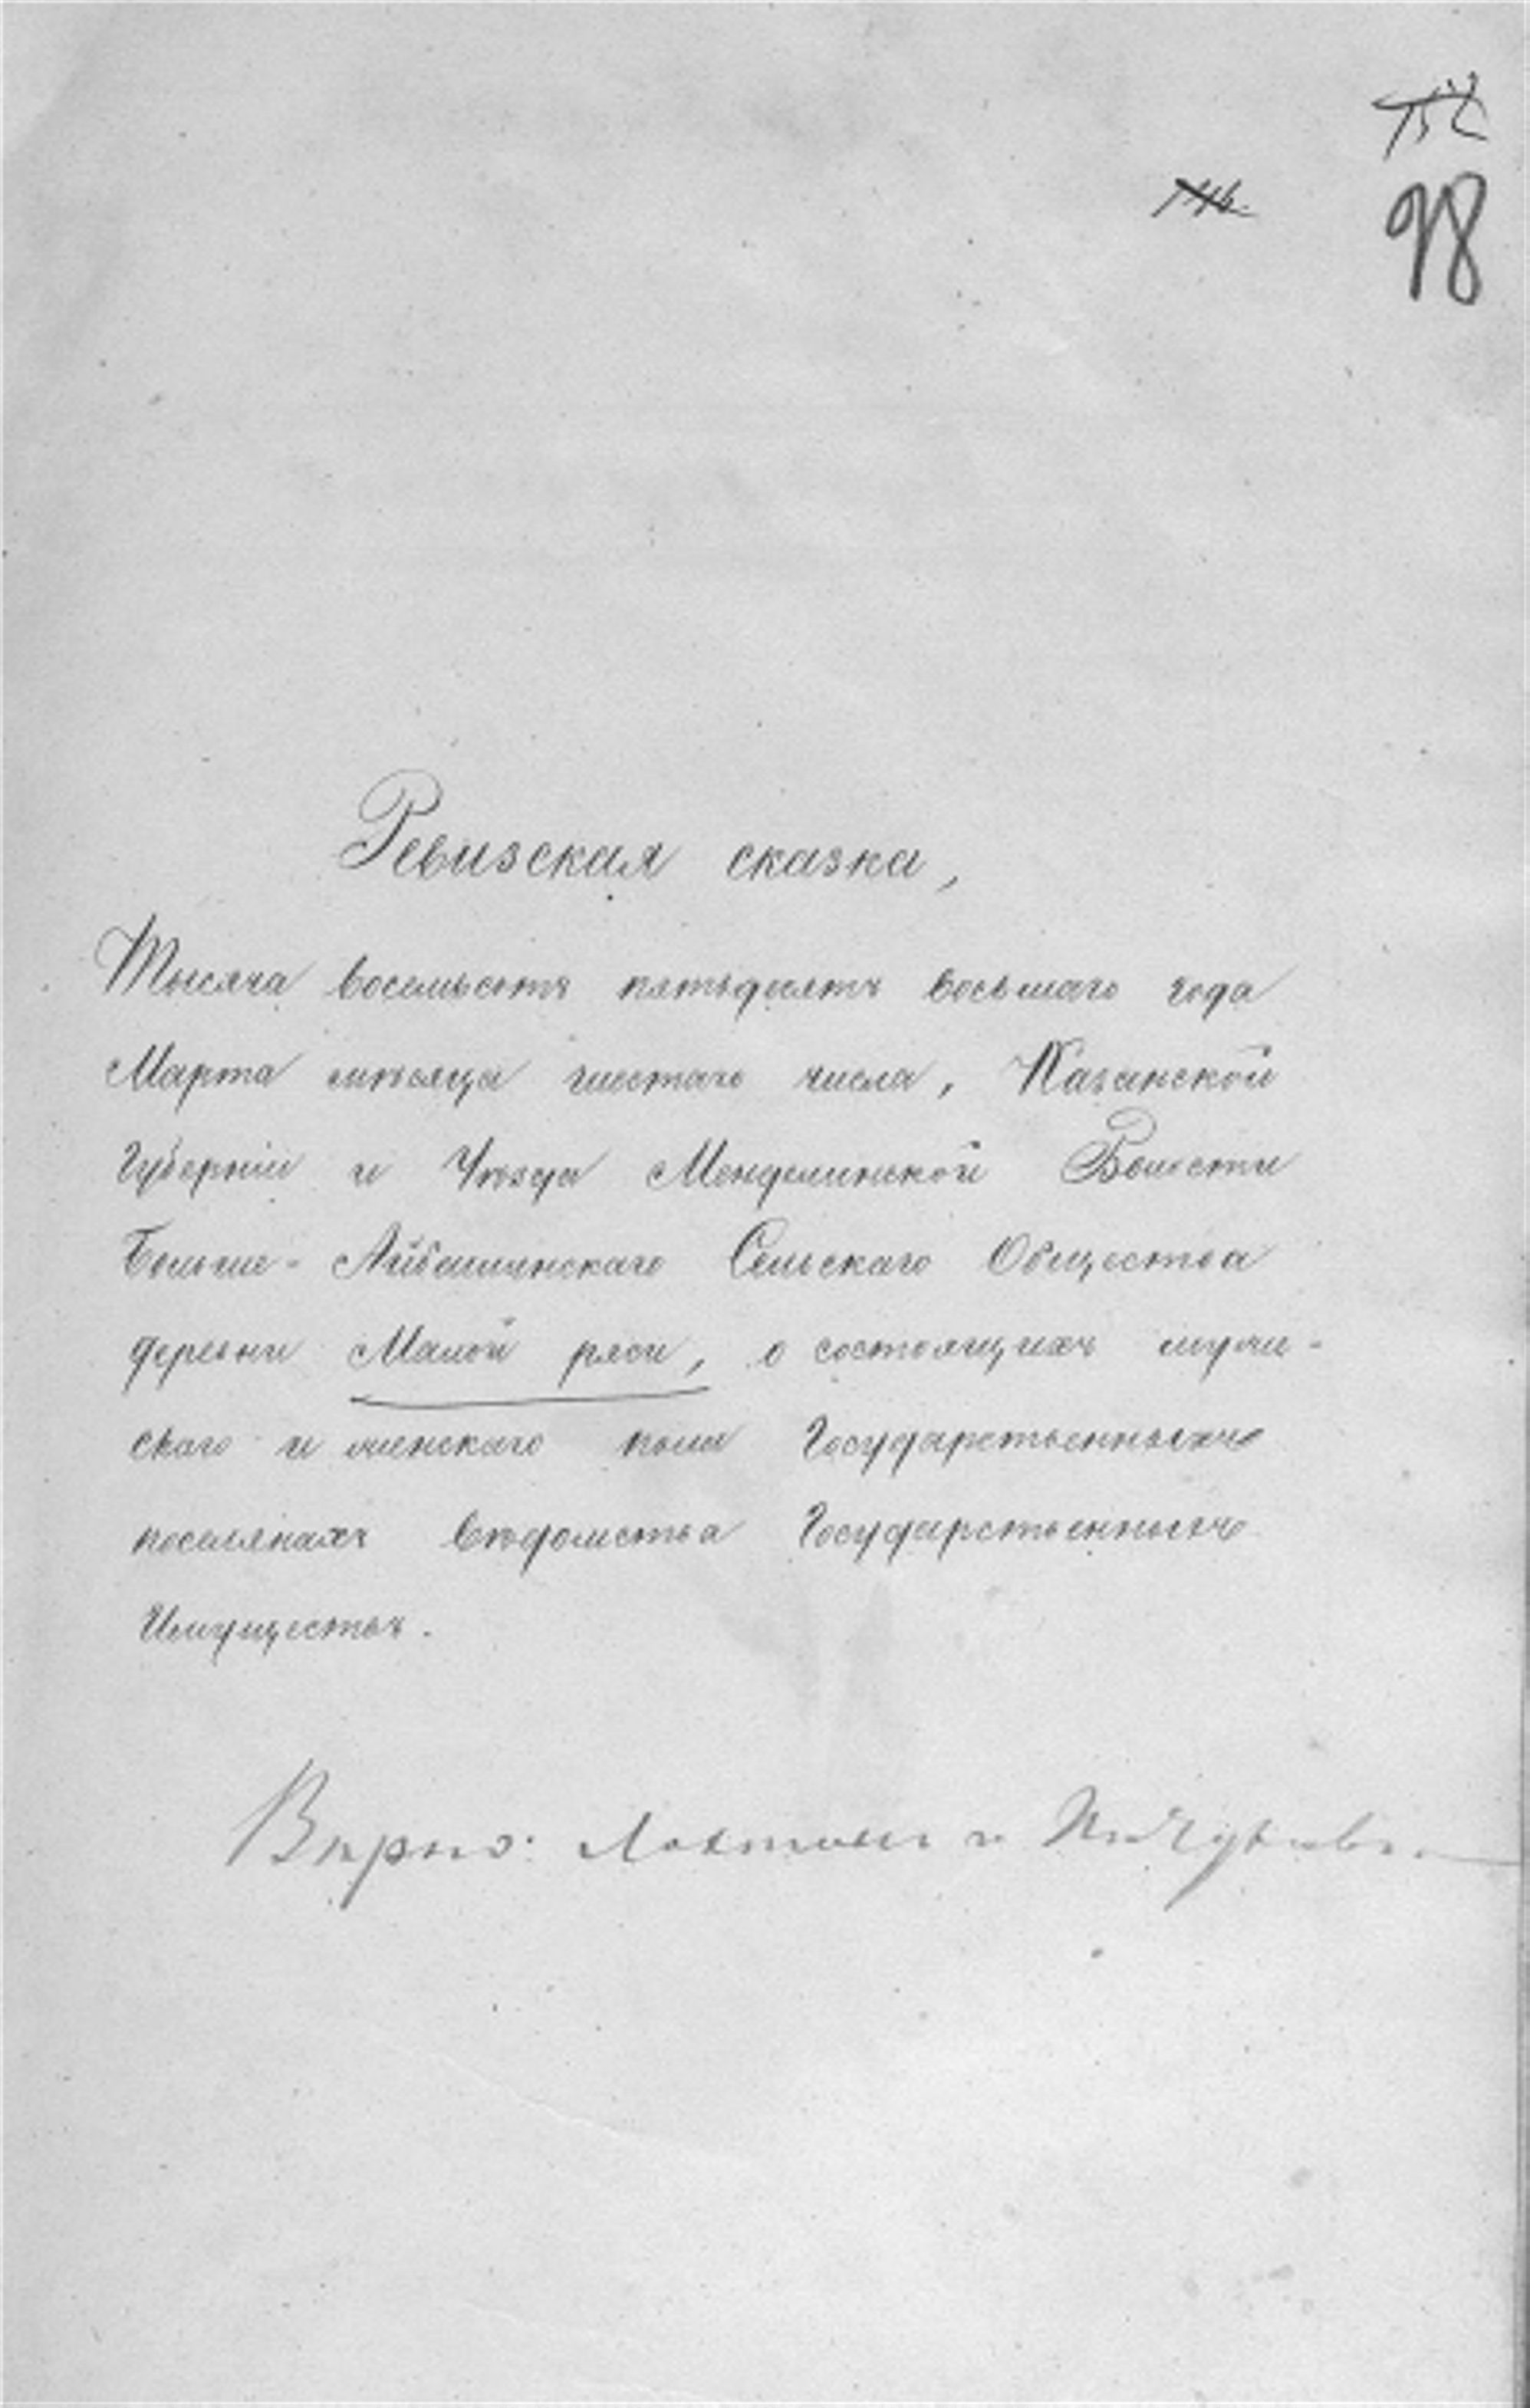 98
Ревизская сказка,
Тысяча восемьсотъ пятьдесятъ восьмаго года
Марта мѣсяца шестаго числа, Казанской
Губерніи и Уѣзда Менделинской Волости
Больше-Айбашинскаго Сельскаго Общества
деревни Малой ряси, о состоящихъ муже-
скаго и женскаго пола Государственныхъ
поселянахъ Вѣдомства Государственныхъ
Имуществъ.
Вѣрно: